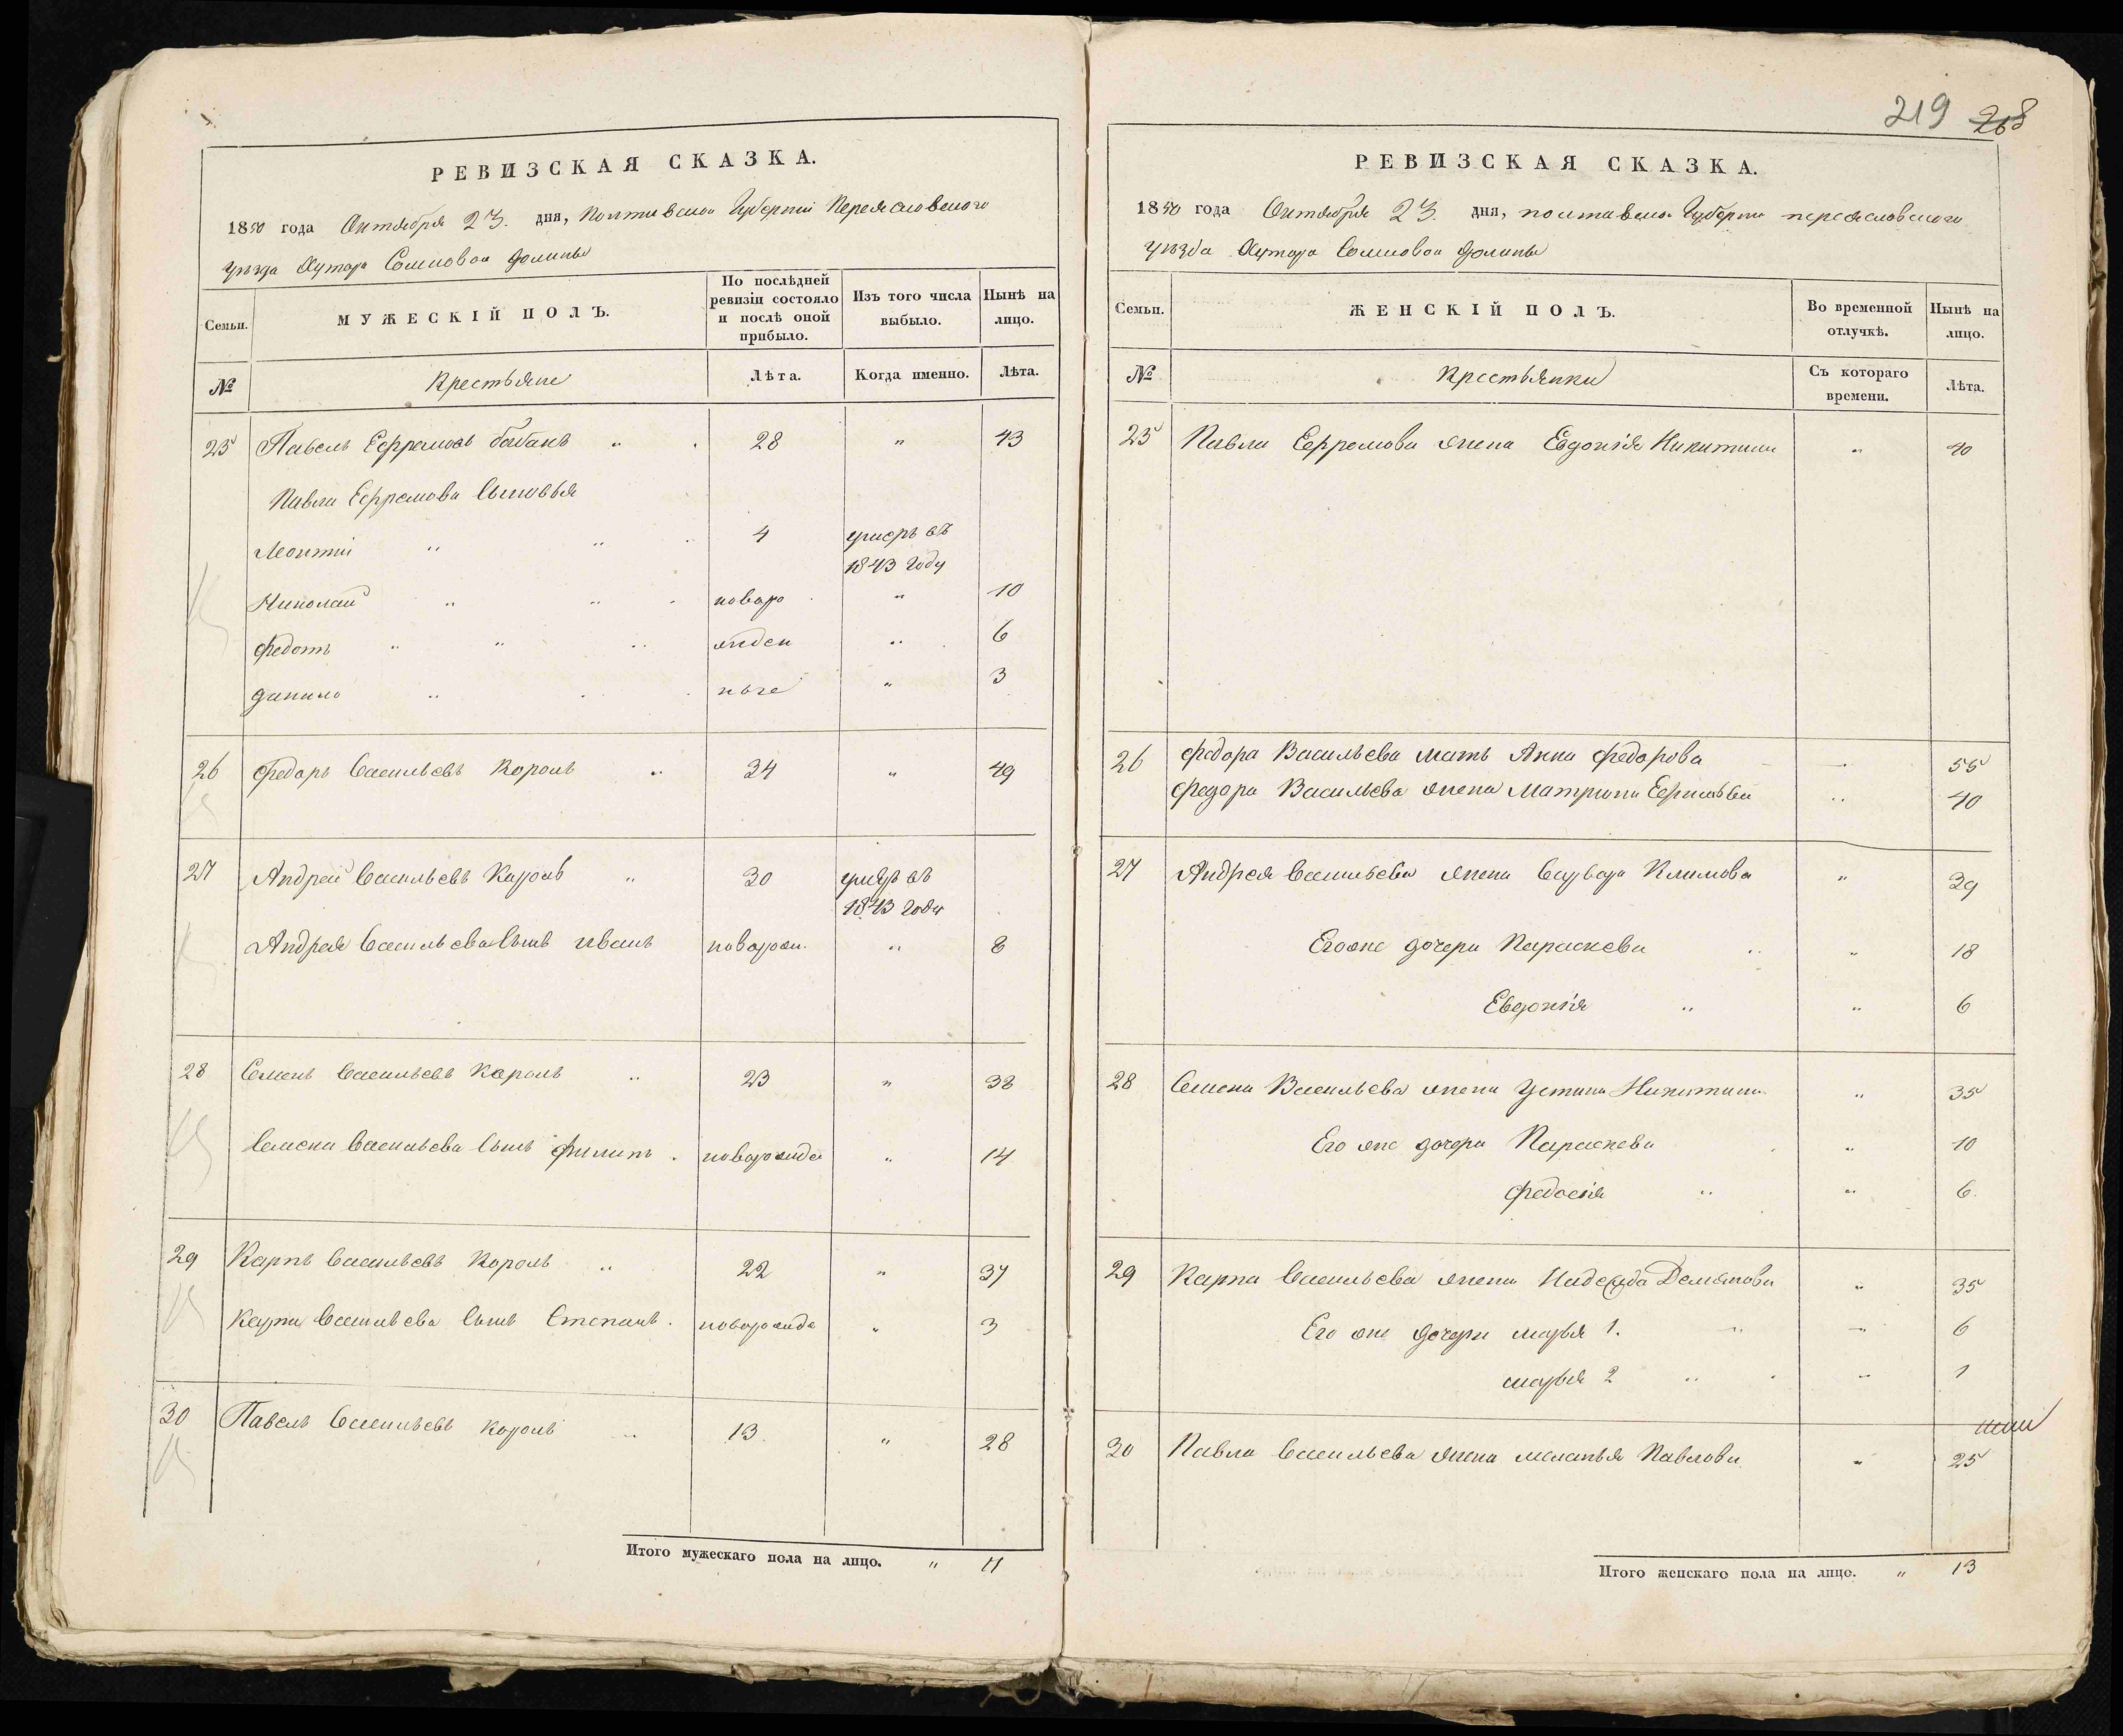 219 268
РЕВИЗСКАЯ СКАЗКА.
1850 года Октября 23. дня, Полтавской Губернии Переясловского
уезда Хутора Сомковой долины
Семьи. МУЖЕСКІЙ ПОЛЪ. По послѣдней ревизіи состояло и послѣ оной прибыло. Изъ того числа выбыло. Нынѣ на лицо.
№ Крестьяне Лѣта. Когда именно. Лѣта.
25 Павелъ Ефремовъ бабакъ " 28 " 43
Павла Ефремова Сыновья
Леонтій " " 4 умеръ въ
1843 году
Николай " " новоро " 10
Федотъ " " жден " 6
данило " ные " 3
26 Федоръ Васильевъ Король " 34 " 49
27 Андрей Васильевъ Король " 30 умеръ въ
1843 годы
Андрея Васильева Сынъ иванъ новорож. " 8
28 Семенъ Васильевъ Король " 23 " 38
Семена Васильева Сынъ филипъ новорожде " 14
29 Карпъ Васильевъ Король " 22 " 37
Карпа Васильева Сынъ Степанъ новорожде " 3
30 Павелъ Васильевъ король " 13 " 28
Итого мужескаго пола на лицо. " 11
РЕВИЗСКАЯ СКАЗКА.
1850 года Октября 23. дня, полтавской Губернии переясловского
уезда Хутора Сомковой долины
Семьи. ЖЕНСКІЙ ПОЛЪ. Во временной отлучкѣ. Нынѣ на лицо.
№ Крестьянки Съ котораго времени. Лѣта.
25 Павла Ефремова жена Евдокія Никитина " 40
26 федора Васильева мать Анна федорова " 55
федора Васильева жена Матрина " 40
27 Андрея Васильева жена Варвара Климова " 39
Егоже дочери Параскева " " 18
Евдокія " " 6
28 Семена Васильева жена Устина Никитина " 35
Его же дочери Параскева " 10
Федосія " " 6.
29 Карпа Васильева жена Надежда Демянова " 35
Его же дочери марья 1. " " 6
марья 2 " " 1
30 Павла Васильева жена меланья Павлова " 25
Итого женскаго пола на лицо. " 13